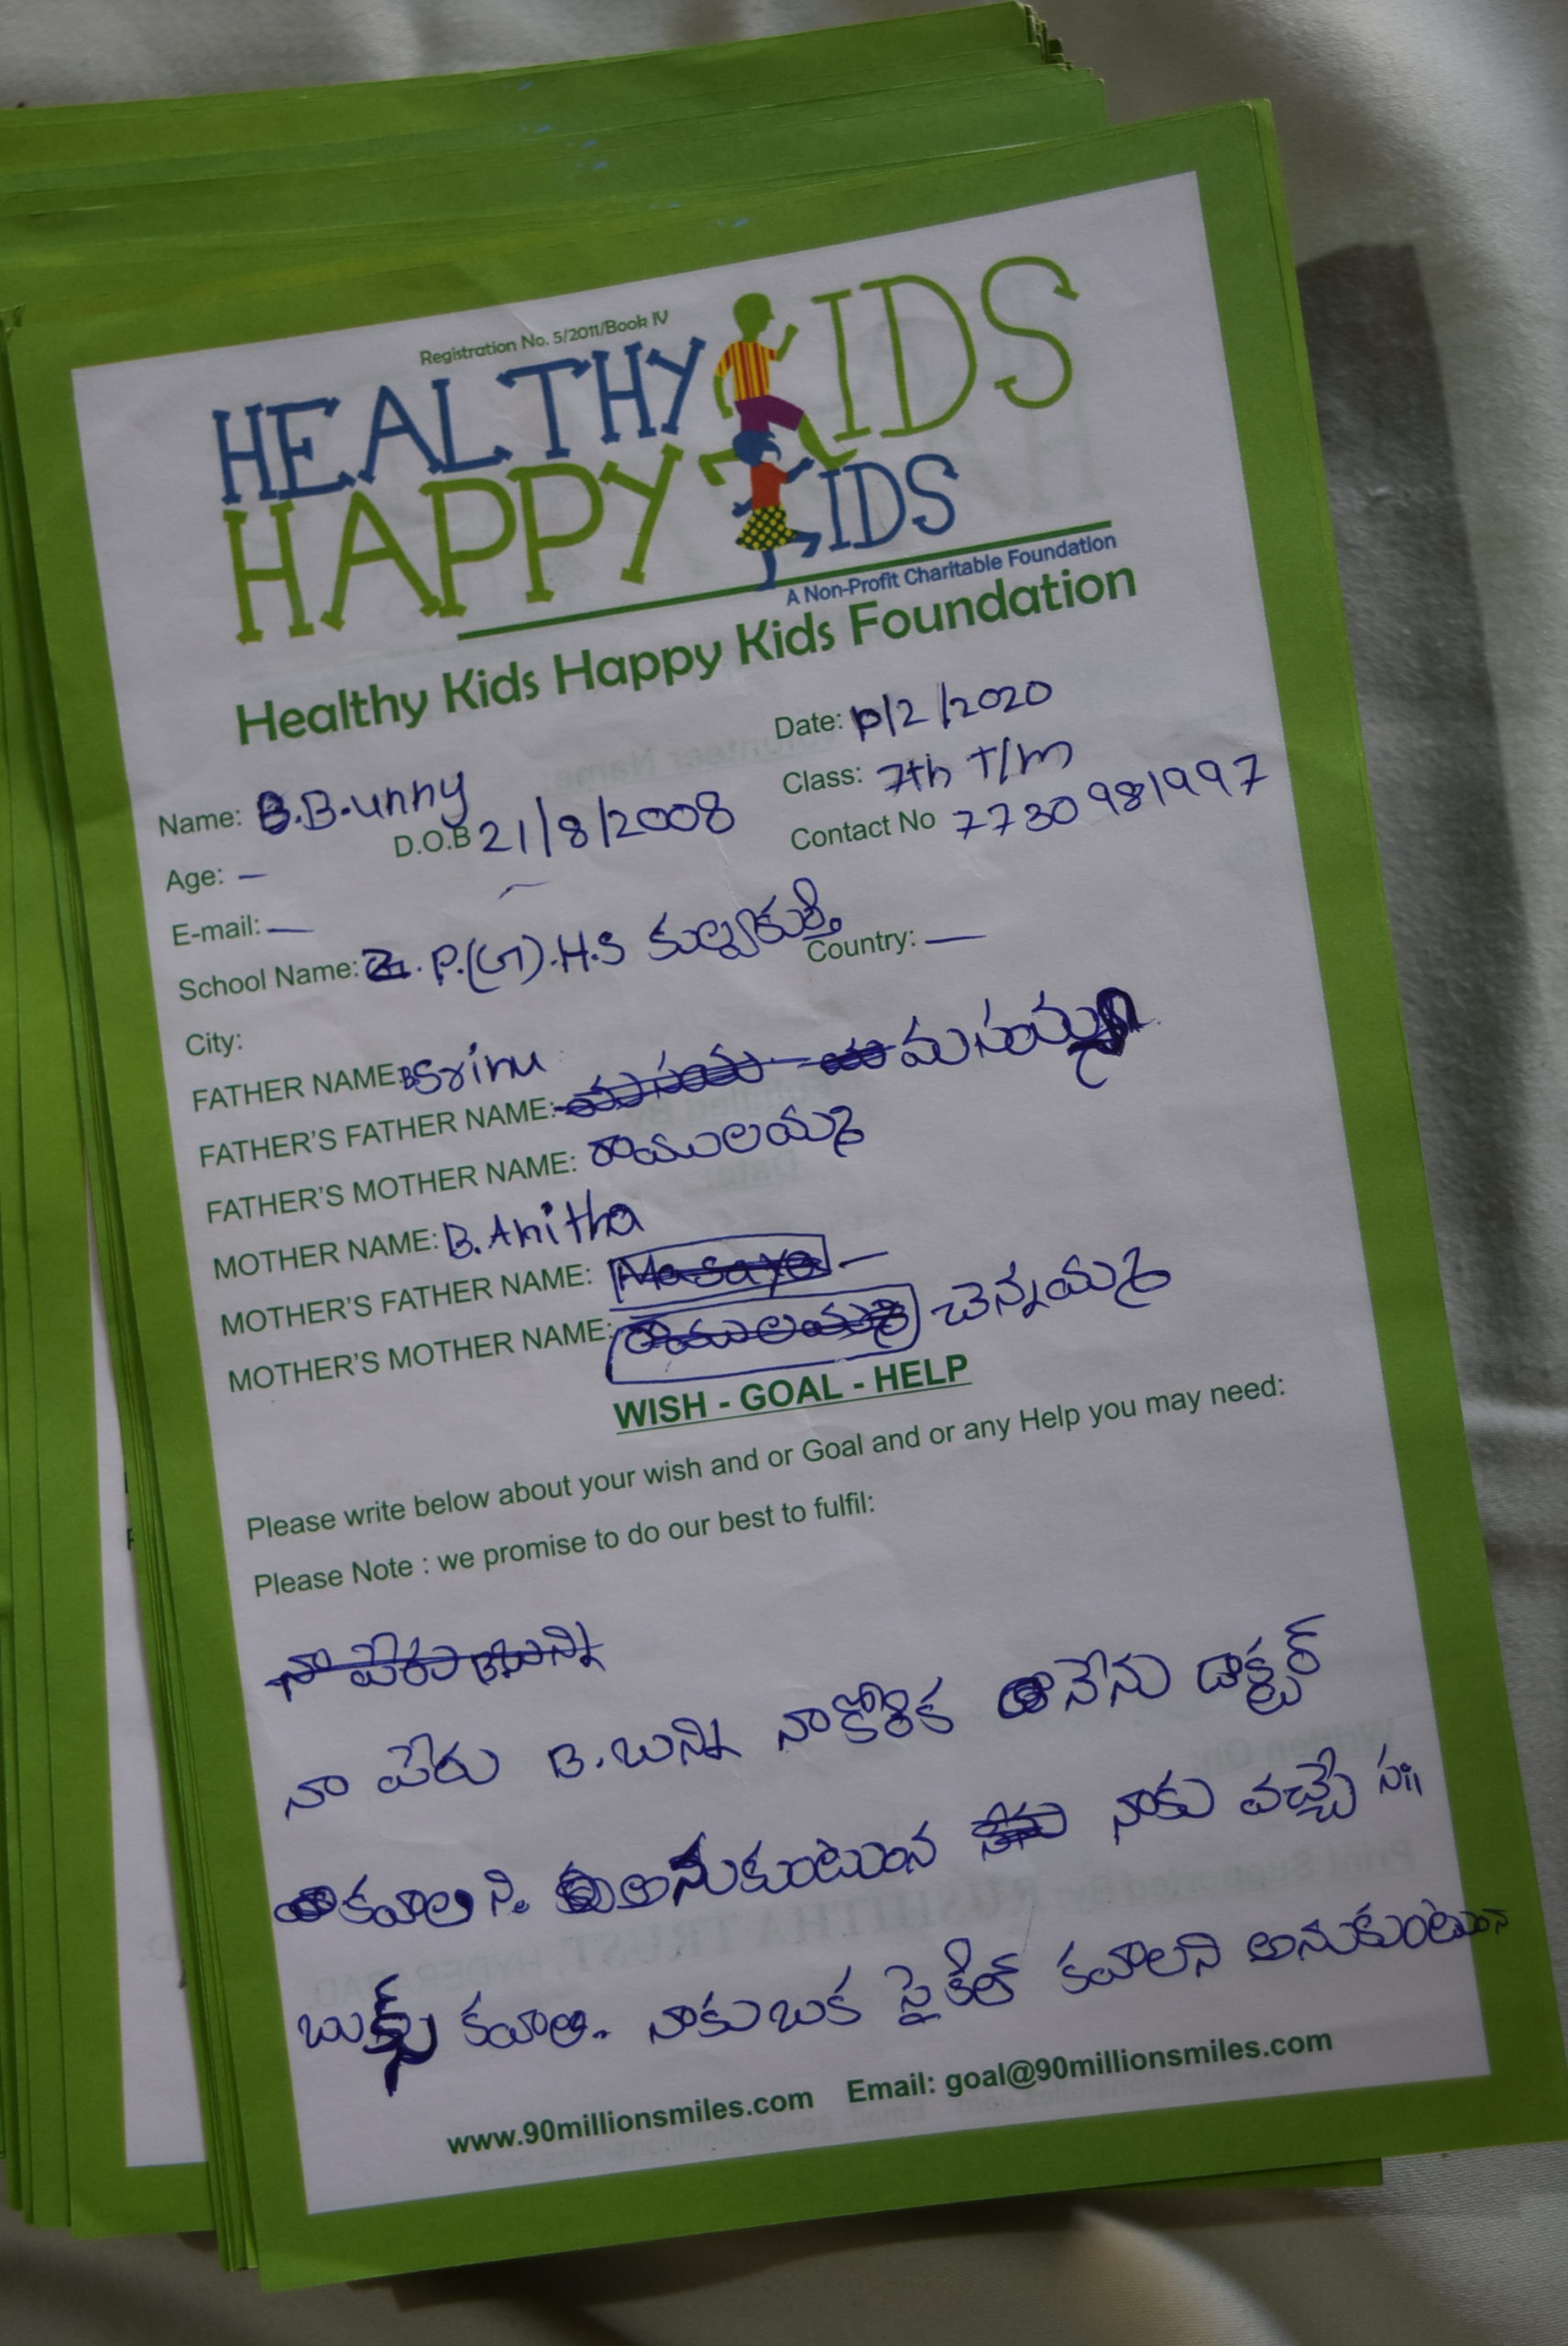 Registration No. 5/2011/Book IV
HEALTHY KIDS
HAPPY KIDS
A Non-Profit Charitable Foundation
Healthy Kids Happy Kids Foundation
Date: 10/2/2020
Name: B.B.unny
Class: 7th T/m
Age: — D.O.B 21/8/2008
Contact No 7730981997
E-mail: —
School Name: Z.P.(G).H.S కల్వకుర్తి
Country: —
City:
FATHER NAME: B Srinu
FATHER'S FATHER NAME: మసయ్య
FATHER'S MOTHER NAME: రాములమ్మ
MOTHER NAME: B.Anitha
MOTHER'S FATHER NAME: Masaya —
MOTHER'S MOTHER NAME: రాములమ్మ చెన్నమ్మ
WISH - GOAL - HELP
Please write below about your wish and or Goal and or any Help you may need:
Please Note : we promise to do our best to fulfil:
నా పేరు B.బున్ని
నా పేరు B.బున్ని నాకోరిక నేను డాక్టర్
కవాలని. అనుకుంటున నాకు వచ్చే సః
బుక్స్ కవాలి.. నాకుబక సైకిల్ కవాలని అనుకుంటున
www.90millionsmiles.com Email: goal@90millionsmiles.com